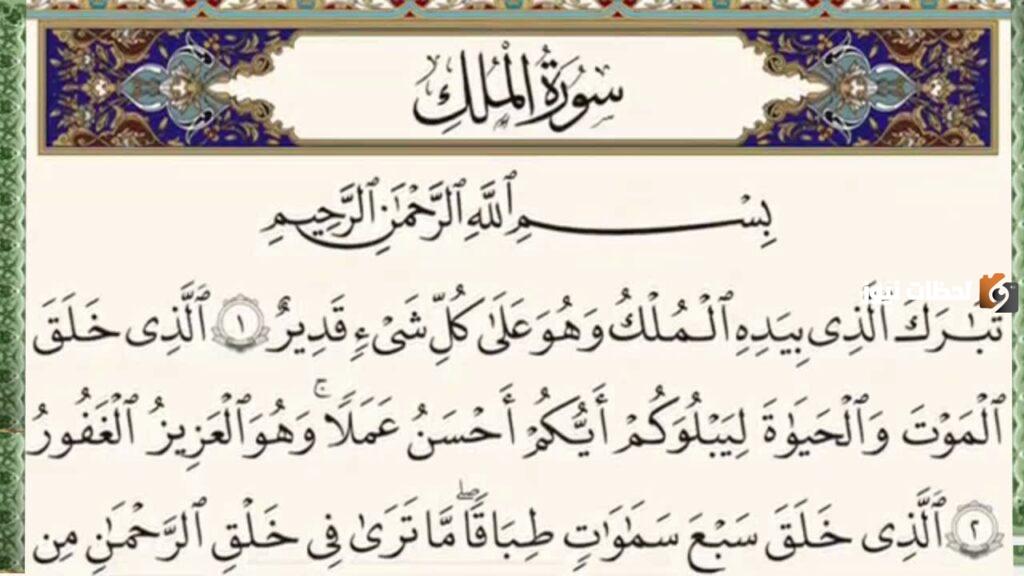 سُورَةُ الْمُلْكِ
بِسْمِ ٱللَّهِ ٱلرَّحْمَٰنِ ٱلرَّحِيمِ
لحظات نيوز
تَبَٰرَكَ ٱلَّذِى بِيَدِهِ ٱلْمُلْكُ وَهُوَ عَلَىٰ كُلِّ شَىْءٍ قَدِيرٌ ١ ٱلَّذِى خَلَقَ
ٱلْمَوْتَ وَٱلْحَيَوٰةَ لِيَبْلُوَكُمْ أَيُّكُمْ أَحْسَنُ عَمَلًا ۚ وَهُوَ ٱلْعَزِيزُ ٱلْغَفُورُ
٢ ٱلَّذِى خَلَقَ سَبْعَ سَمَٰوَٰتٍ طِبَاقًا ۖ مَّا تَرَىٰ فِى خَلْقِ ٱلرَّحْمَٰنِ مِن